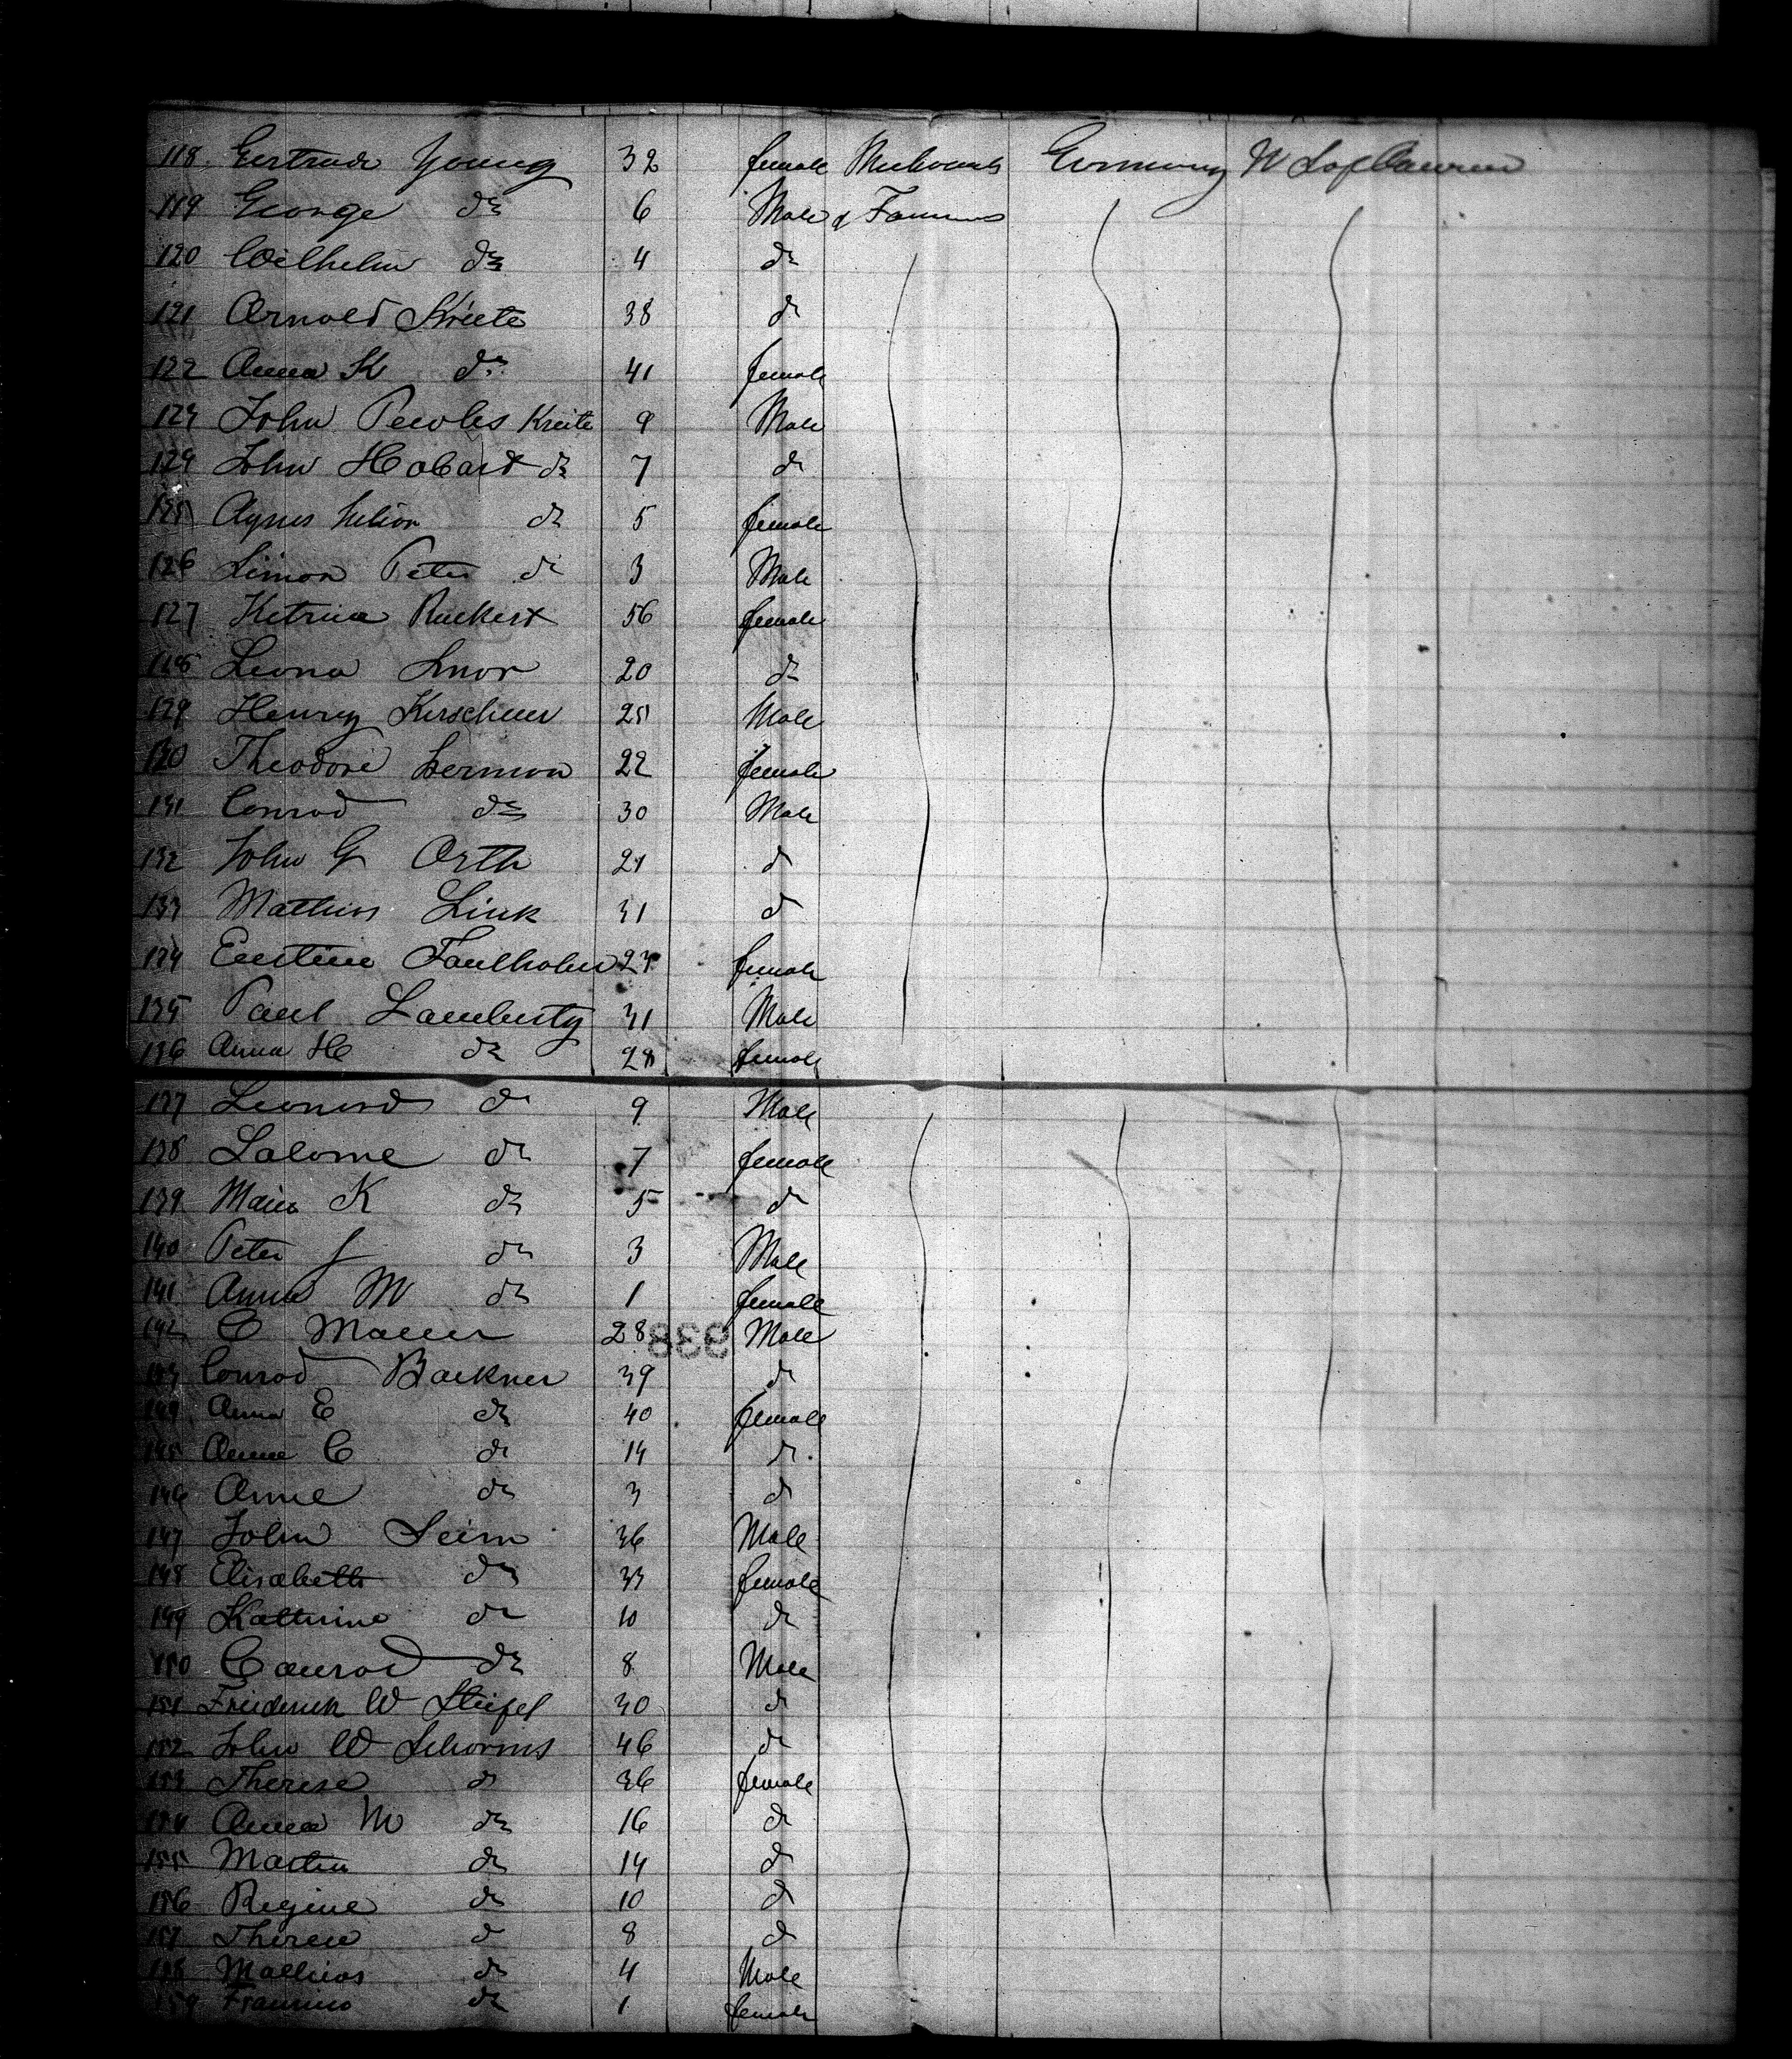 118 Gertrude Young 32 female Mechanics Germany N
119 George do 6 Male & Farmers
120 Wilhelm do 4 do
121 Arnold Kriete 38 do
122 Anna K do 41 female
123 John Kriete 9 Male
124 John Hobart do 7 do
125 Agnes do 5 female
126 Simon Peter do 3 Male
127 Ketrina Ruckert 56 female
128 Leona 20 do
129 Henry Kerschner 25 Male
130 Theodore 22 female
131 Conrod do 30 Male
132 John G Orth 21 do
133 Mathias Link 31 do
134 female
135 Paul Lamberty 31 Male
136 Anna H do 28 female
137 Leonard do 9 Male
138 Salome do 7 female
139 Maria K do 5 do
140 Peter J do 3 Male
141 Anna M do 1 female
142 C 28 Male
938
143 Conrod Backner 39 do
144 Anna E do 40 female
145 Anne C do 14 do
146 Anne do 3 do
147 John Seim 36 Male
148 Elisabeth do 33 female
149 Katherine do 10 do
150 Conrod do 8 Male
151 Friederick W Stiefel 30 do
152 John W Schorms 46 do
153 Therese do 36 female
154 Anna M do 16 do
155 Martin do 14 do
156 Regine do 10 do
157 Therese do 8 do
158 Mathias do 4 Male
159 do 1 female